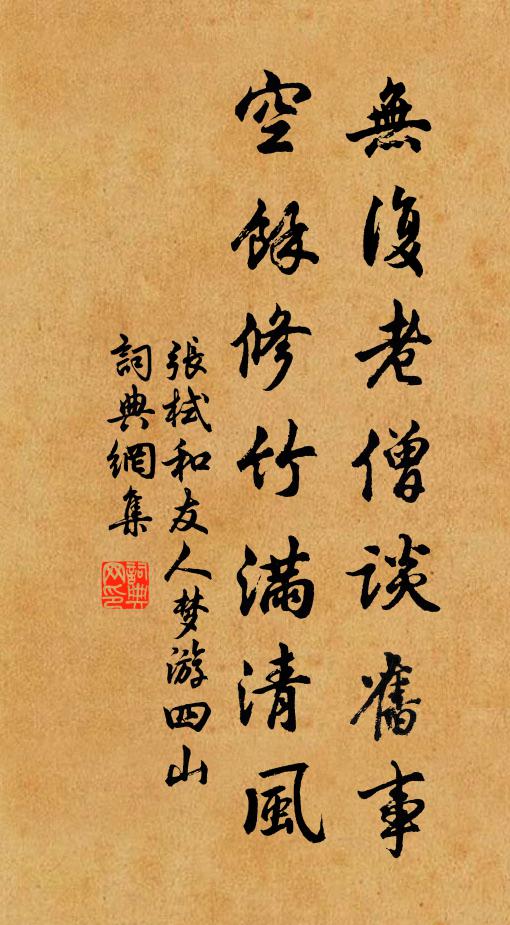 無復老僧談舊事
空餘修竹滿清風
張栻和友人梦游四山
詞典網集
詞典网印